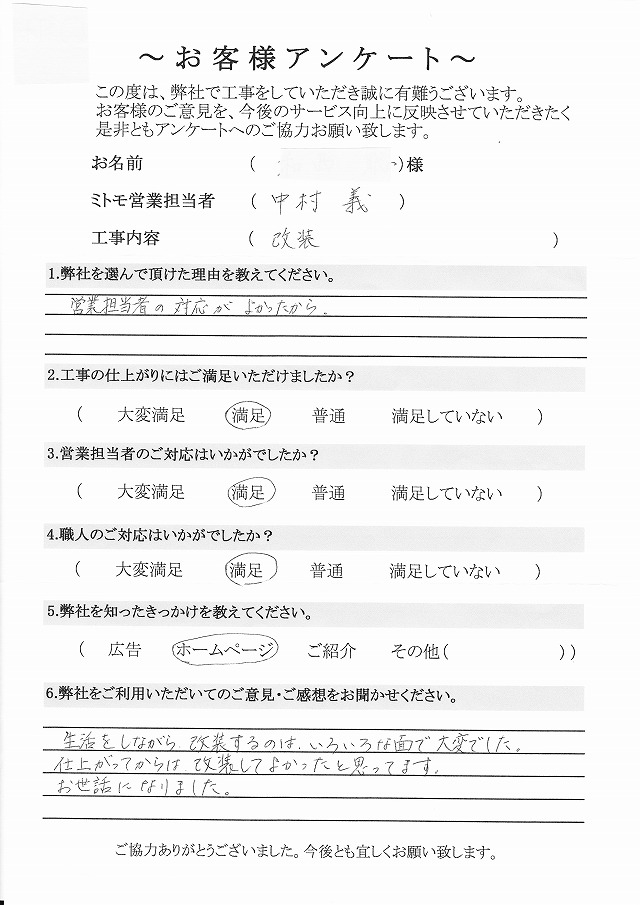 ～お客様アンケート～
この度は、弊社で工事をしていただき誠に有難うございます。
お客様のご意見を、今後のサービス向上に反映させていただきたく
是非ともアンケートへのご協力お願い致します。
お名前 ( )様
ミトモ営業担当者 ( 中村 義 )
工事内容 ( 改装 )
1.弊社を選んで頂けた理由を教えてください。
営業担当者の対応がよかったから.
2.工事の仕上がりにはご満足いただけましたか？
( 大変満足 満足 普通 満足していない )
3.営業担当者のご対応はいかがでしたか？
( 大変満足 満足 普通 満足していない )
4.職人のご対応はいかがでしたか？
( 大変満足 満足 普通 満足していない )
5.弊社を知ったきっかけを教えてください。
( 広告 ホームページ ご紹介 その他( ) )
6.弊社をご利用いただいてのご意見・ご感想をお聞かせください。
生活をしながら、改装するのは、いろいろな面で大変でした。
仕上がってからは、改装してよかったと思ってます。
お世話になりました。
ご協力ありがとうございました。今後とも宜しくお願い致します。